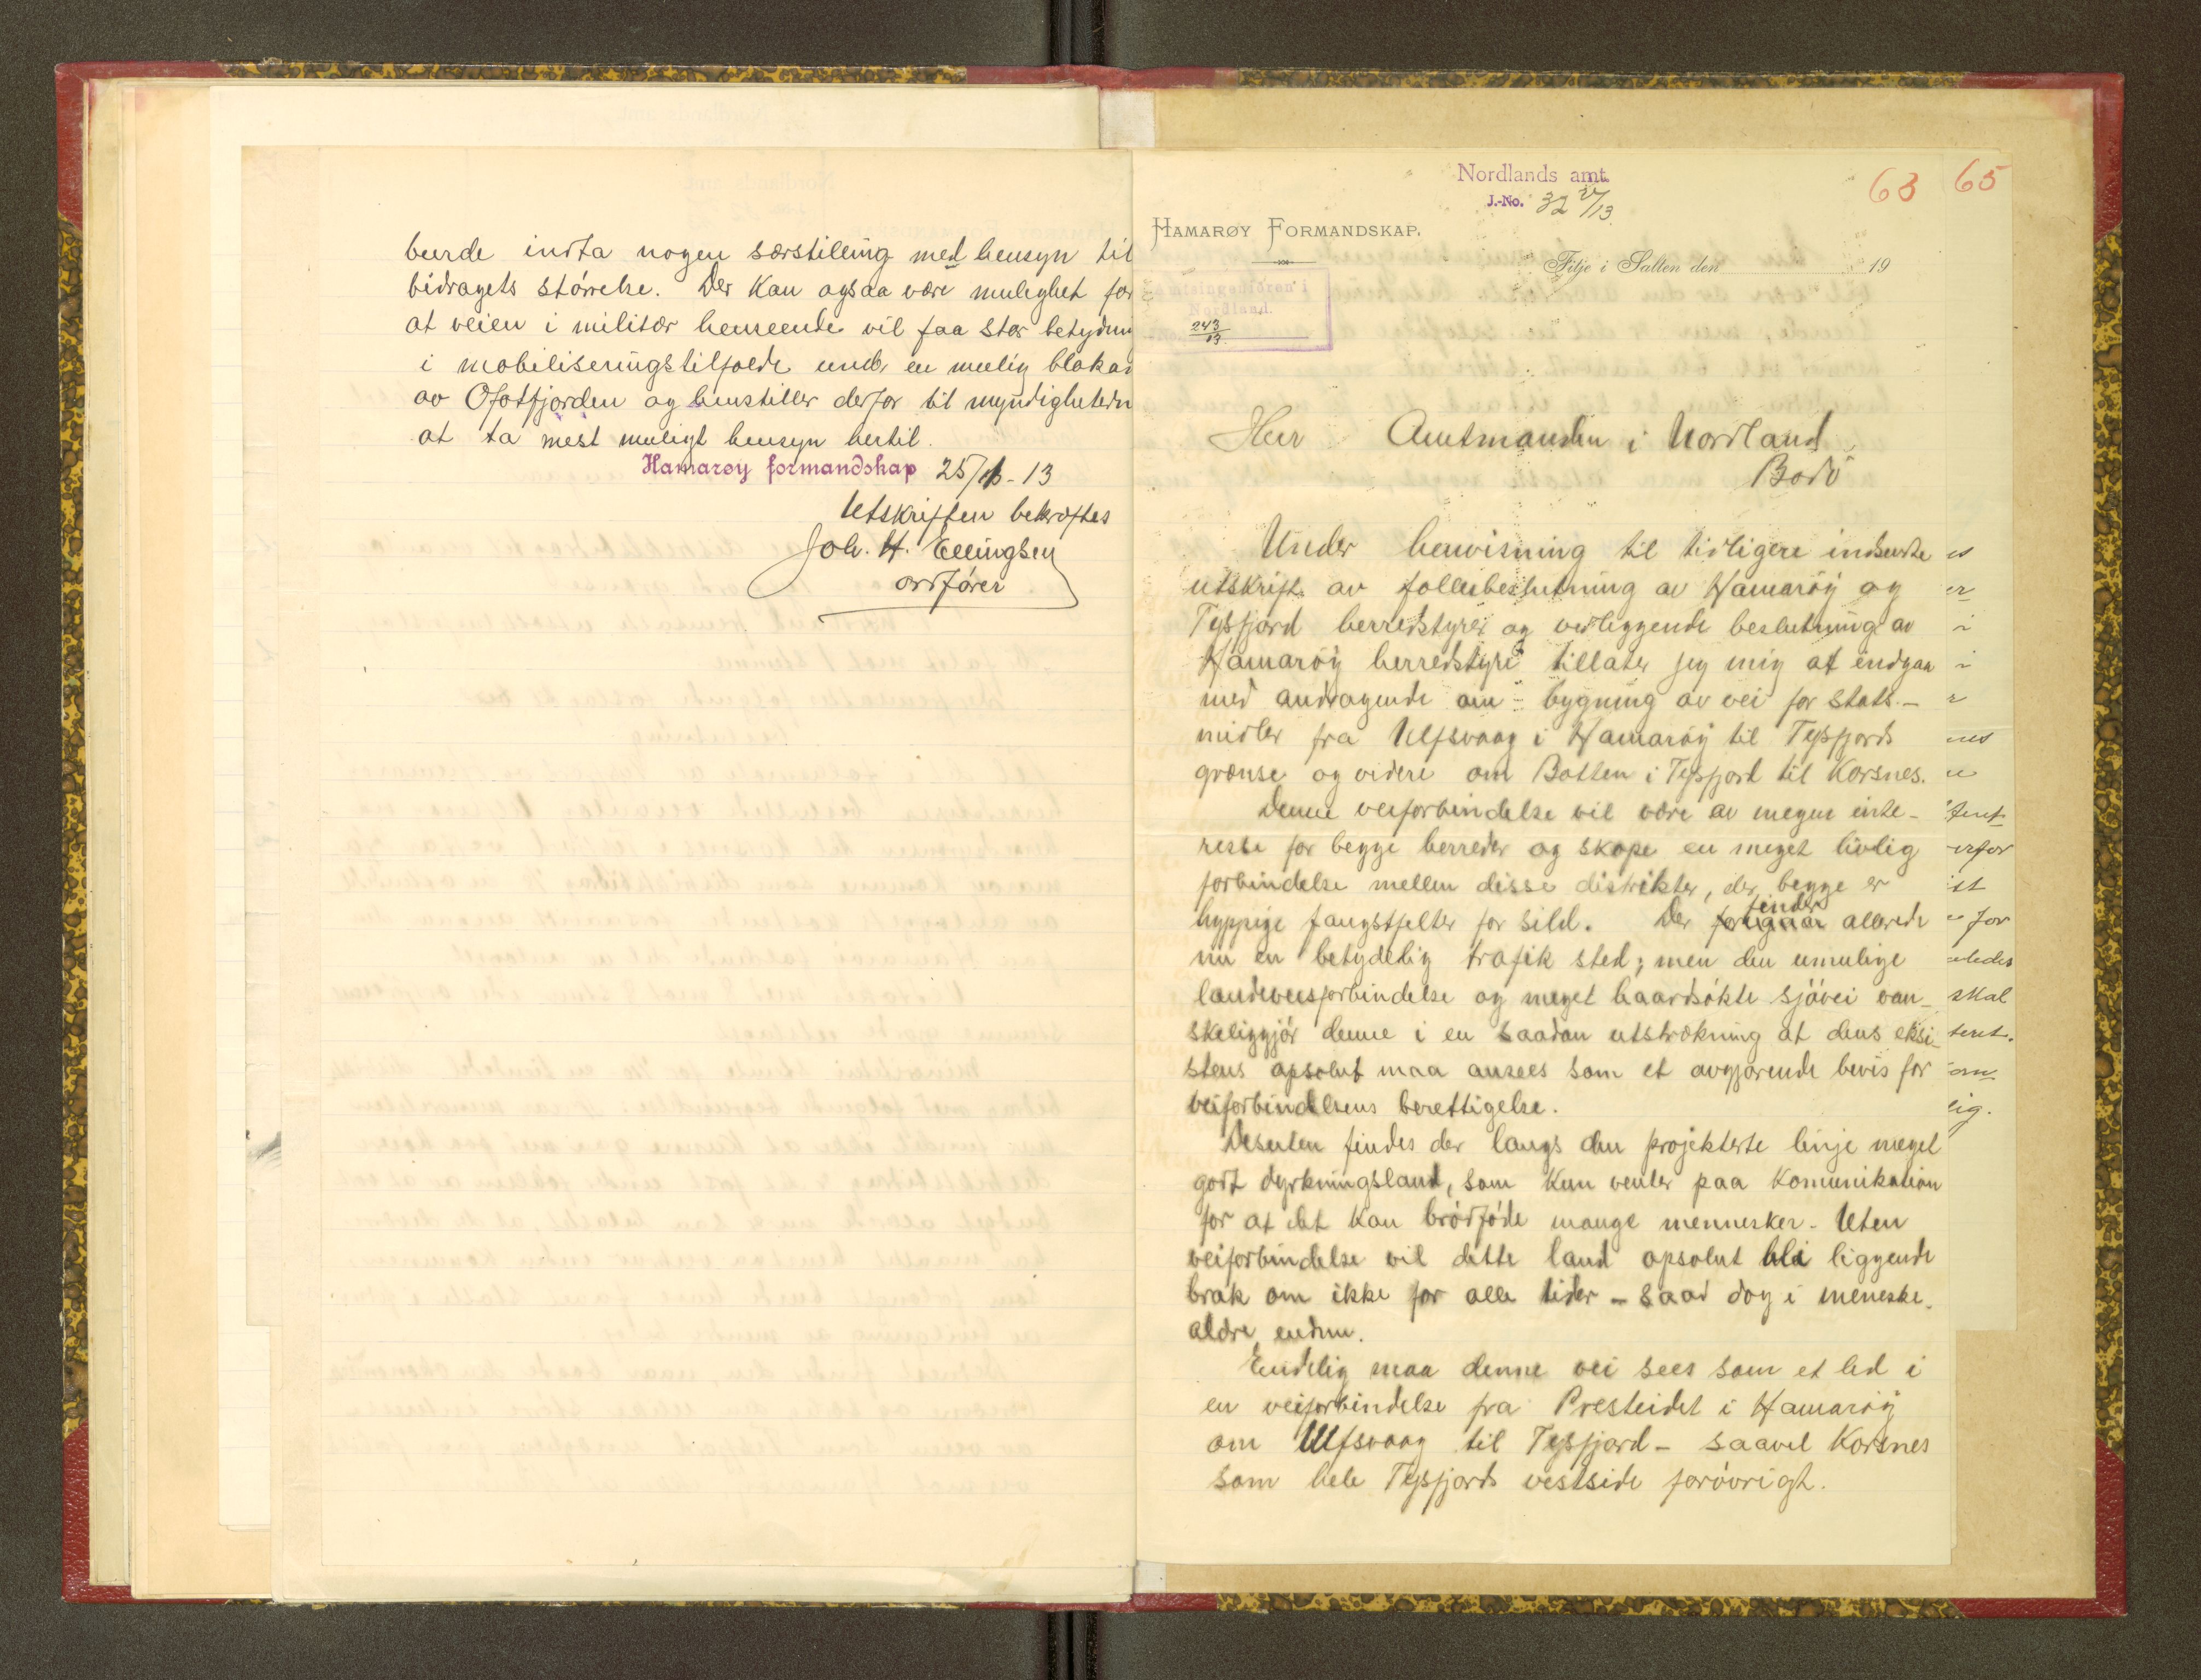 burde indta nogen særstilling med hensyn til
bidragets størrelse. Der kan ogsaa være mulighet for
at veien i militær henseende vil faa stor betydni
i mobiliseringstilfælde under en mulig blokad
av Ofotfjorden og henstiller derfor til myndighetern
at ta mest muligt hensyn hertil.
Hamarøy formandskap 25/ - 13
Utskriften bekræftes
Joh. H. Ellingsen
ordfører
Nordlands amt.
J.-No. 32 27/13
63 65
HAMARØY FORMANDSKAP.
Fitje i Salten den 19
Amtsingeniøren i
Nordland.
243
13
Herr Amtmanden i Nordland
Bodø
Under henvisning til tidligere indsendte
utskrift av fællesbeslutning av Hamarøy og
Tysfjord herredstyrer og vedliggende beslutning av
Hamarøy herredstyre tillater jeg mig at indgaa
med andragende om bygning av vei for stats-
midler fra Ulfsvaag i Hamarøy til Tysfjords
grænse og videre om Botten i Tysfjord til Korsnes.
Denne veiforbindelse vil være av megen inte-
resse for begge herreder og skape en meget livlig
forbindelse mellem disse distrikter, der begge er
hyppige fangstfelter for sild. Der foregaar finder allerede
nu en betydelig trafik sted; men den umulige
landeveisforbindelse og meget haardsøkte sjøvei van-
skeliggjør denne i en saadan utstrækning at dens eksi-
stens apsolut maa ansees som et avgjørende bevis for
veiforbindelsens berettigelse.
Desuten findes der langs den projekterte linje meget
godt dyrkningsland, som kun venter paa komunikation
for at det kan brødføde mange mennesker. Uten
veiforbindelse vil dette land apsolut bli liggende
brak om ikke for alle tider - saa dog i meneske-
aldre endnu.
Endelig maa denne vei sees som et led i
en veiforbindelse fra Presteidet i Hamarøy
om Ulfsvaag til Tysfjord - saavel Korsnes
som hele Tysfjords vestside forøvrigt.
er
i
i
erfor
for
ledes
skal
teret.
om
lig.